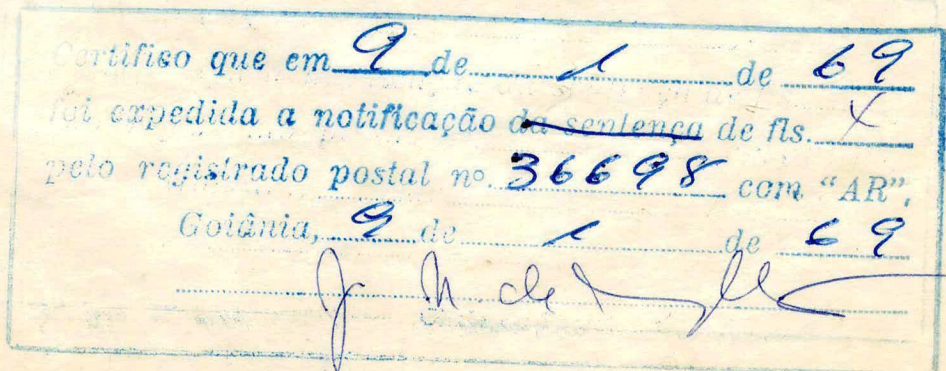 Certifico que em 9 de 1 de 69
foi expedida a notificação da sentença de fls. X
pelo registrado postal nº. 36698 com "AR".
Goiânia, 9 de 1 de 69